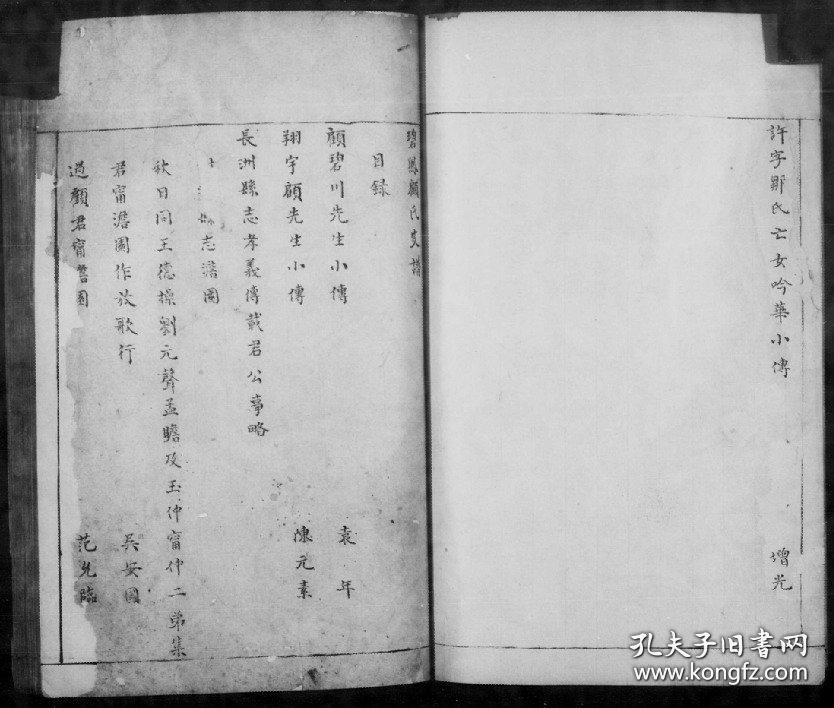 許字鄒氏亡女吟華小傳 增光
碧鳳顧氏支譜
目錄
顧碧川先生小傳 袁年
翔宇顧先生小傳 陳元素
長洲縣志孝義傳載君公事略
志澹園
秋日同王德操劉元聲孟瞻及玉仲甯仲二弟集
君甯澹園作放歌行 吳安國
過顧君甯 園 范允臨
孔夫子旧书网
www.kongfz.com